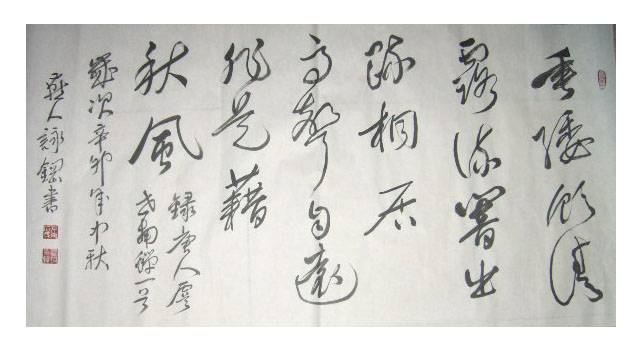 垂緌飲清
露流響出
疏桐居
高聲自遠
非是藉
秋風
錄唐人虞
世南蟬一首
歲次辛卯年中秋
燕人詠鋼書